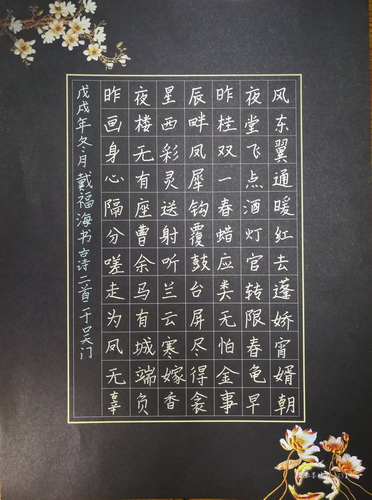 昨夜星辰昨夜风
画楼西畔桂堂东
身无彩凤双飞翼
心有灵犀一点通
隔座送钩春酒暖
分曹射覆蜡灯红
嗟余听鼓应官去
走马兰台类转蓬
为有云屏无限娇
凤城寒尽怕春宵
无端嫁得金龟婿
辜负香衾事早朝
戊戌年冬月戴福海书古诗二首于吴门